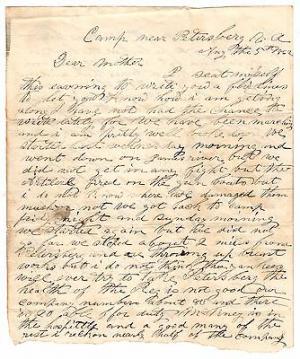 Camp near Petersberg Va
Aug the 5th 1862
Dear Mother
I seat myself
this eavning to write you a few lines
to let you know how i am geting
along I have not had the chance to
write lately for we have been marching
and i am prittly well broke down We
started last wednesday morning and
went down on James river but we
did not get in any fight but the
fired on the gun boats but
i do not know there was damaged them
much or not We got back to camp
friday night and sunday morning
we started again but we did not
go far we stoped about 2 miles from
Petersberg and are throwing up brest
works but i do not think the yankees
will ever try to Petersberg the
health of the Reg is not good our
company numbers about 60 and there
is 20 able for duty is
in the hospittle and a good many of the
rest i reckon nearly half of the company